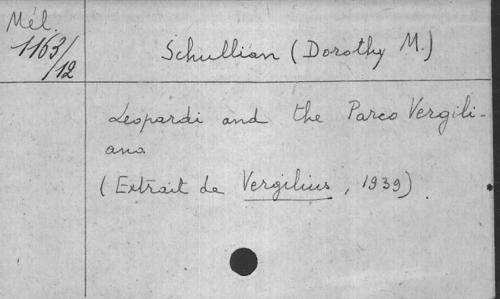 Mél.
1163/
/12
Schullian (Dorothy M.)
Leopardi and the Parco Vergili-
ana
(Extrait de Vergilius, 1939)